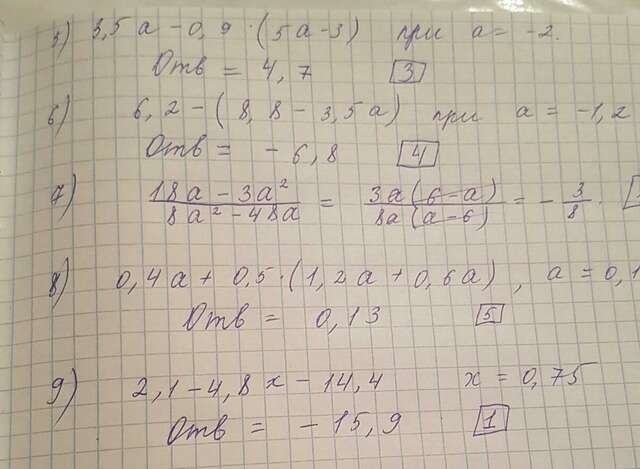 5) 3,5a - 0,9·(5a-3) при a = -2.
Отв = 4,7 3
6) 6,2 - (8,8 - 3,5a) при a = -1,2
Отв = - 6,8 4
7) (18a - 3a²)/(8a² - 48a) = 3a(6-a)/8a(a-6) = - 3/8 ·
8) 0,4a + 0,5·(1,2a + 0,6a), a = 0,1
Отв = 0,13 5
9) 2,1 - 4,8x - 14,4 x = 0,75
Отв = - 15,9 1